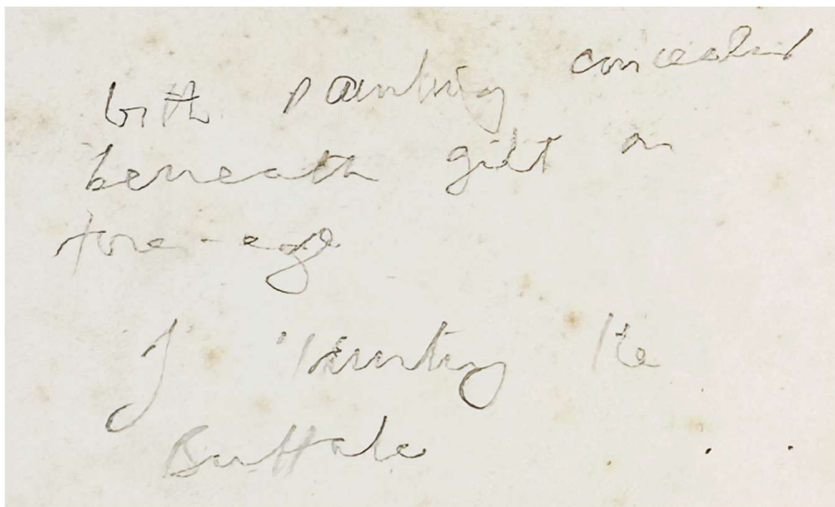 with painting concealed
beneath gilt on
fore-edge
of 'Hunting the
Buffalo